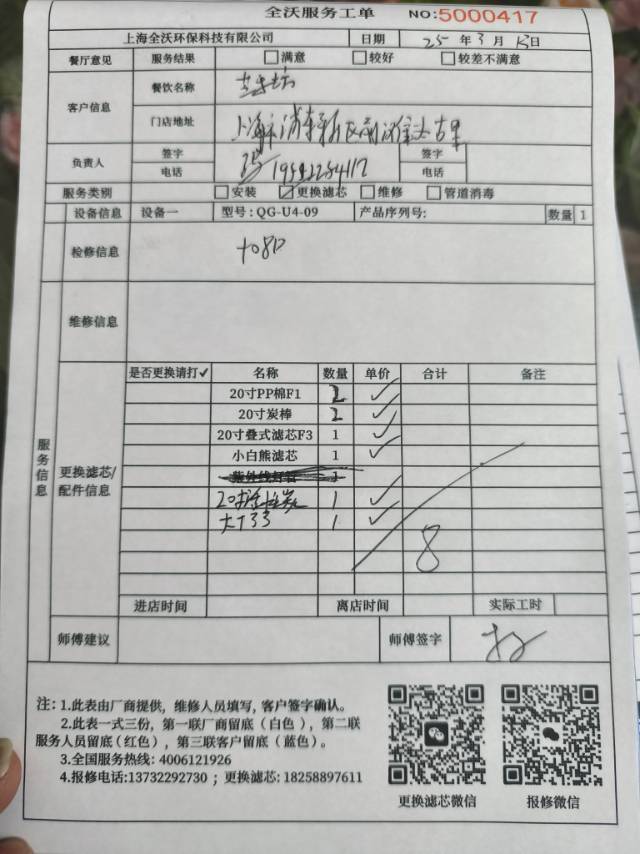 全沃服务工单 NO:5000417
上海全沃环保科技有限公司 日期 25 年 3 月 日
餐厅意见 服务结果 满意 较好 较差不满意
客户信息 餐饮名称
门店地址 上海市浦东新区
负责人 签字 签字
电话 电话
服务类别 安装 更换滤芯 维修 管道消毒
设备信息 设备一 型号:QG-U4-09 产品序列号: 数量 1
检修信息
维修信息
服务信息
更换滤芯/配件信息
是否更换请打✓ 名称 数量 单价 合计 备注
20寸PP棉F1 2 ✓
20寸炭棒 2 ✓
20寸叠式滤芯F3 1 ✓
小白熊滤芯 1 ✓
紫外线灯管 1
20寸 1 ✓
大T33 1 ✓
8
进店时间 离店时间 实际工时
师傅建议 师傅签字
注: 1.此表由厂商提供，维修人员填写, 客户签字确认。
2.此表一式三份，第一联厂商留底（白色），第二联
服务人员留底(红色），第三联客户留底（蓝色）。
3.全国服务热线: 4006121926
4.报修电话:13732292730 ; 更换滤芯: 18258897611
更换滤芯微信 报修微信